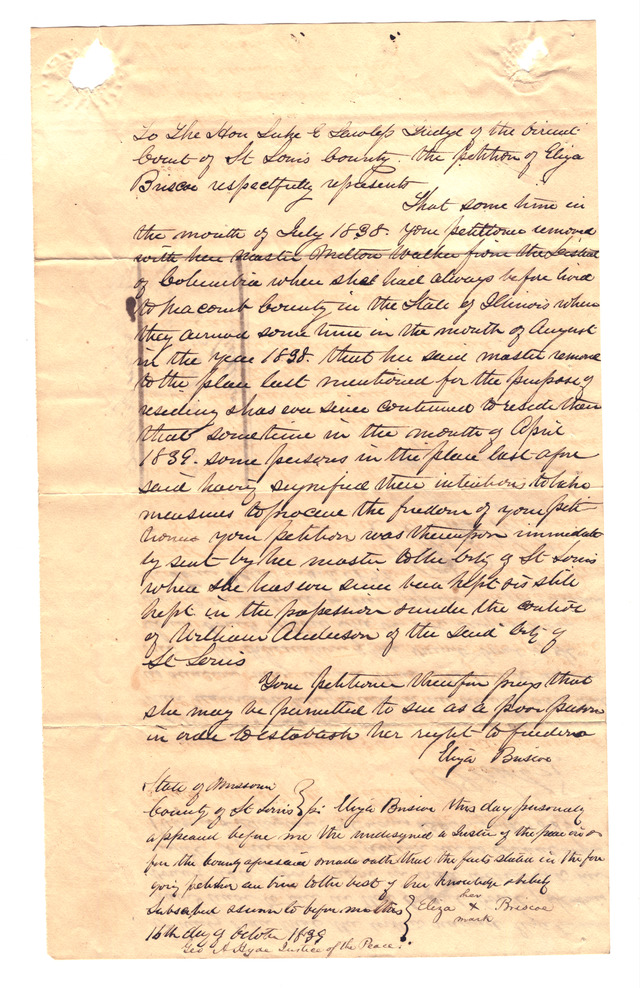 To The Hon Luke E Lawless Judge of the Circuit
Court of St Louis County. The petition of Eliza
Briscoe respectfully represents
That some time in
the month of July 1838. your petitioner removed
with her master Milton Walker from the District
of Columbia where she had always before lived
to Macomb County in the State of Illinois where
they arrived some time in the month of August
in the year 1838. that her said master removed
to the place last mentioned for the purpose of
residing & has ever since continued to reside there
that sometime in the month of April
1839. some persons in the place last afore
said having signified their intention to take
measures to procure the freedom of your peti
tioner your petitioner was thereupon immediate
ly sent by her master to the City of St Louis
where she has ever since been kept & is still
kept in the possession & under the control
of William Anderson of the said City of
St Louis
Your petitioner therefore prays that
she may be permitted to sue as a poor person
in order to establish her right to freedom
Eliza Briscoe
State of Missouri
County of St Louis Eliza Briscoe this day personally
appeared before me the undersigned a Justice of the peace
for the County aforesaid & made oath that the facts stated in the fore
going petition are true to the best of her knowledge & belief
Subscribed & sworn to before me this } Eliza her x mark Briscoe
16th day of October 1839
Geo A Hyde Justice of the Peace.